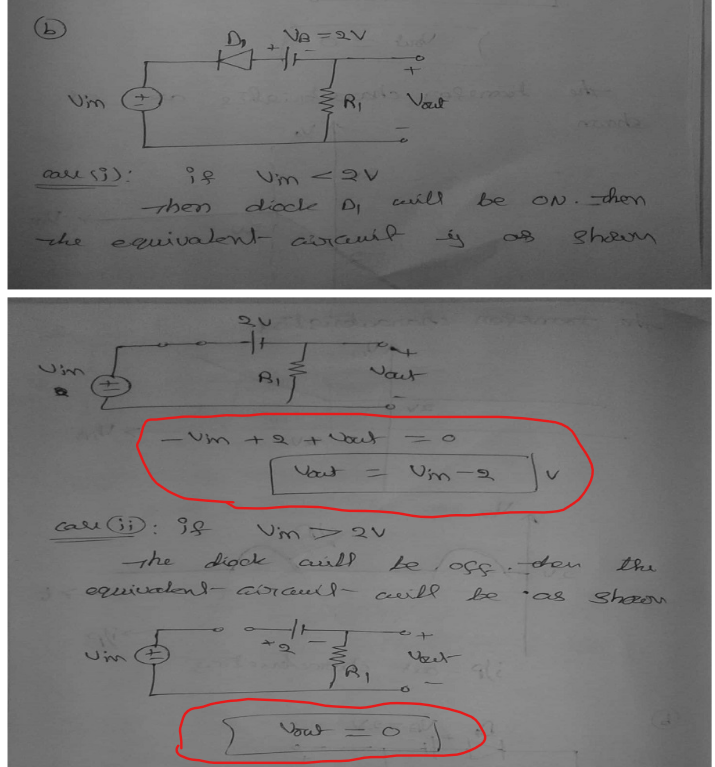 (b)
D₁ + V_B = 2V -
Vin + - R₁ + Vout -
case (i): if Vin < 2V
Then diode D₁ will be ON. Then
the equivalent circuit is as shown
2V
Vin + - R₁ + Vout -
-Vin + 2 + Vout = 0
Vout = Vin - 2 V
case (ii): if Vin > 2V
The diode will be off. then the
equivalent circuit will be as shown
+ 2 -
Vin + - R₁ + Vout -
Vout = 0